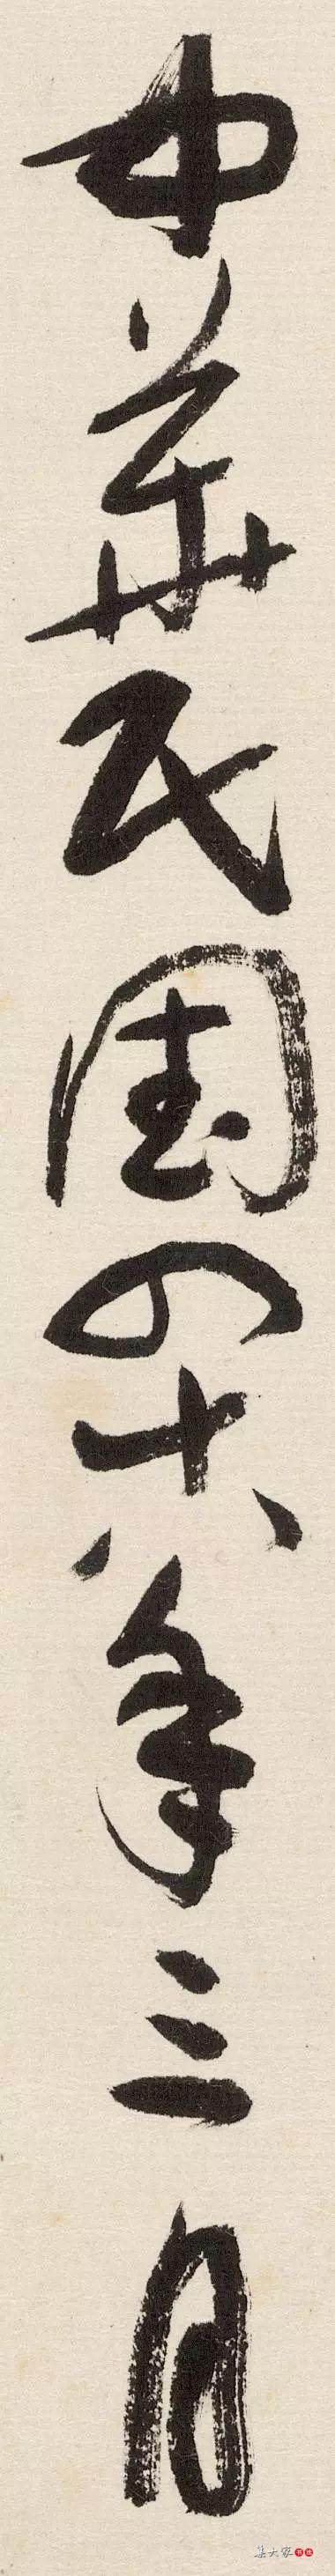 中華民国四十八年三月
集大家